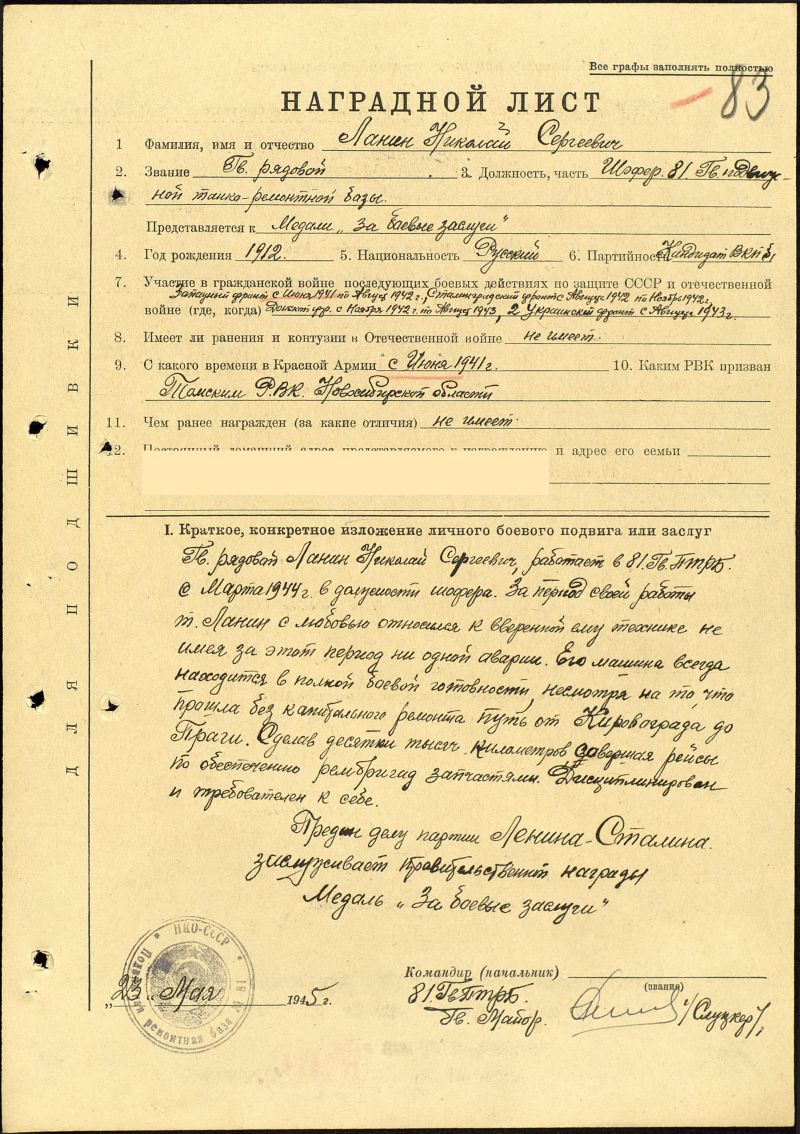 Все графы заполнять полностью
83
НАГРАДНОЙ ЛИСТ
1 Фамилия, имя и отчество Ланин Николай Сергеевич
2. Звание Гв. рядовой 3. Должность, часть Шофер 81. Гв. подвиж-
ной танко-ремонтной базы.
Представляется к Медали „За боевые заслуги"
4. Год рождения 1912. 5. Национальность Русский 6. Партийность Кандидат ВКПб
7. Участие в гражданской войне последующих боевых действиях по защите СССР и отечественной
Западный фронт с Июня 1941 по Август 1942г., Сталинградский фронт с Август 1942 по Ноябрь 1942г.
войне (где, когда) Донской фр. с Ноября 1942г. по Август 1943, 2 Украинский фронт с Августа 1943г.
8. Имеет ли ранения и контузии в Отечественной войне не имеет.
9. С какого времени в Красной Армии с Июня 1941г. 10. Каким РВК призван
Томским РВК. Новосибирской области
11. Чем ранее награжден (за какие отличия) не имеет.
12. Постоянный домашний адрес представляемого к награждению и адрес его семьи
I. Краткое, конкретное изложение личного боевого подвига или заслуг
Гв. рядовой Ланин Николай Сергеевич, работает в 81. Гв. ПТРБ.
с Марта 1944г. в должности шофера. За период своей работы
т. Ланин с любовью относился к вверенной ему технике не
имея за этот период ни одной аварии. Его машина всегда
находится в полной боевой готовности, несмотря на то, что
прошла без капитального ремонта путь от Кировограда до
Праги. Сделав десятки тысяч километров завершая рейсы
по обеспечению рембригад запчастями. Дисциплинирован
и требователен к себе.
Предан делу партии Ленина-Сталина.
заслуживает правительственной награды
Медаль „За боевые заслуги"
Командир (начальник)
(звание)
81. Гв ПТРБ.
Гв. Майор. /Слуцкер/
„23" Мая 1945 г.
НКО-СССР
Подвижная ремонтная база № 81
ДЛЯ ПОДШИВКИ